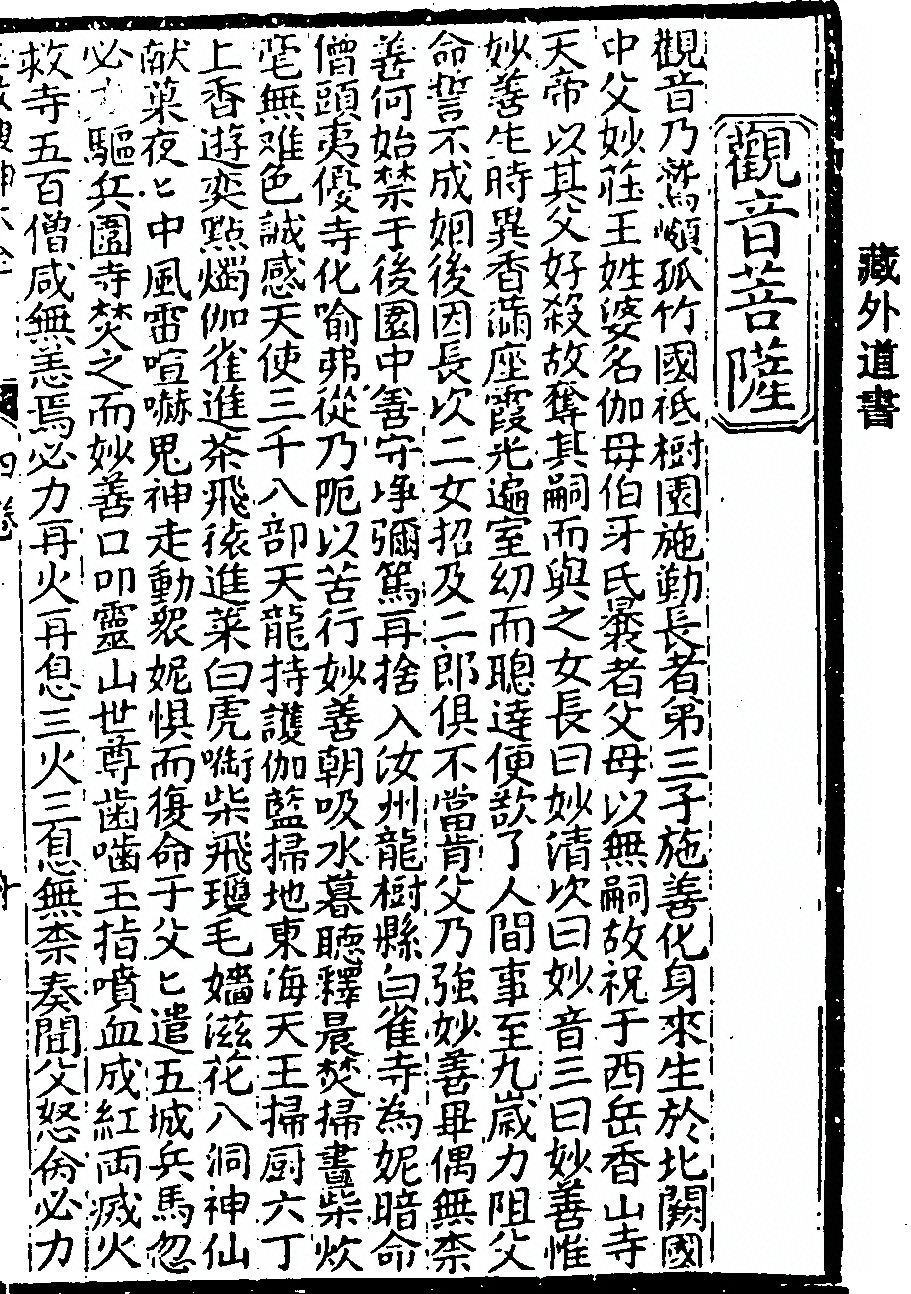 藏外道書
觀音菩薩
觀音乃鷲嶺孤竹國祗樹園施勤長者第三子施善化身來生於北闕國
中父妙莊王姓婆名伽母伯牙氏曩者父母以無嗣故祝于西岳香山寺
天帝以其父好殺故奪其嗣而與之女長曰妙清次曰妙音三曰妙善惟
妙善生時異香滿座霞光遍室幼而聰達便欲了人間事至九歲力阻父
命誓不成姻後因長次二女招及二郎俱不當肯父乃強妙善畢偶無柰
善何始禁于後園中善守净彌篤再捨入汝州龍樹縣白雀寺為妮暗命
僧頭夷優寺化喻弗從乃阨以苦行妙善朝吸水暮聽釋晨焚掃晝柴炊
毫無难色誠感天使三千八部天龍持護伽藍掃地東海天王掃厨六丁
上香遊奕點燭伽雀進茶飛猿進菜白虎啣柴飛瓊毛嬙滋花八洞神仙
献菓夜匕中風雷喧嚇鬼神走動衆妮惧而復命于父匕遣五城兵馬忽
必力驅兵圍寺焚之而妙善口叩靈山世尊齒嚙玉指噴血成紅雨滅火
救寺五百僧咸無恙焉必力再火再息三火三息無柰奏聞父怒俞必力
四卷